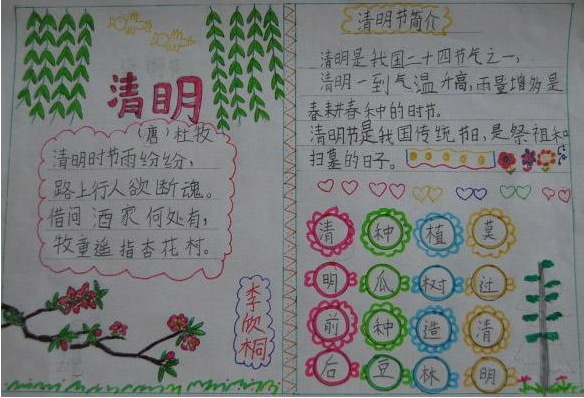 清明
(唐)杜牧
清明时节雨纷纷，
路上行人欲断魂。
借问酒家何处有，
牧童遥指杏花村。
李欣桐
清明节简介
清明是我国二十四节气之一，
清明一到气温升高，雨量增多是
春耕春种的时节。
清明节是我国传统节日，是祭祖和
扫墓的日子。
清明前后
种瓜种豆
植树造林
莫过清明